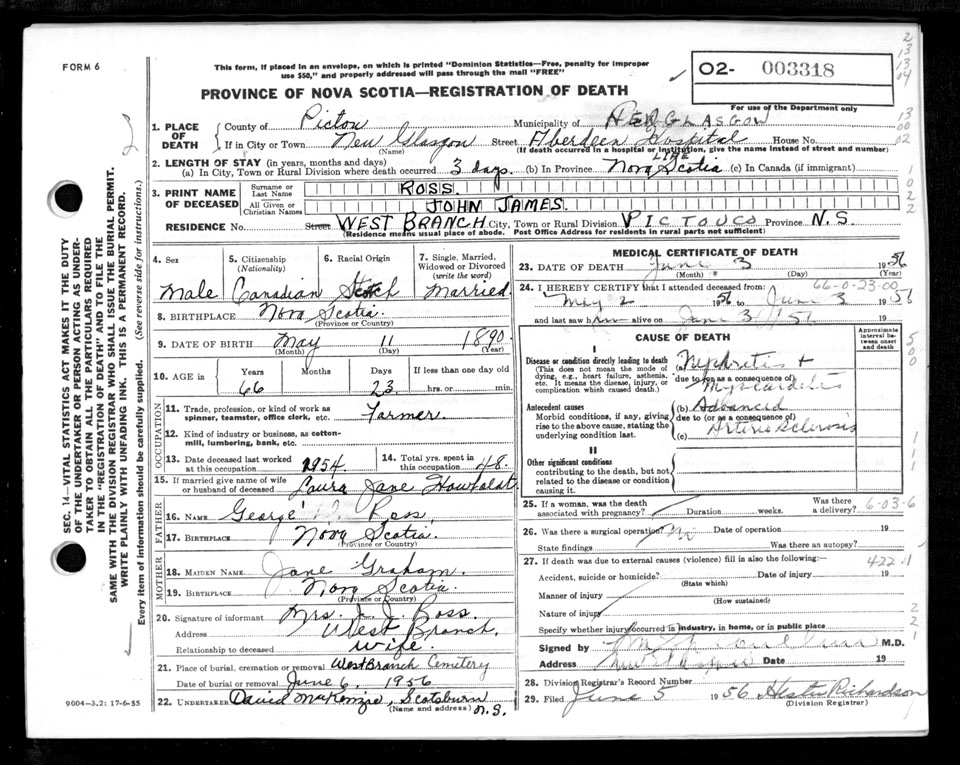 FORM 6
This form, if placed in an envelope, on which is printed "Dominion Statistics—Free, penalty for improper
use $50," and properly addressed will pass through the mail "FREE"
PROVINCE OF NOVA SCOTIA—REGISTRATION OF DEATH
02- 003318
For use of the Department only
1. PLACE OF DEATH
County of Pictou Municipality of GLASGOW
If in City or Town New Glasgow Street Aberdeen Hospital House No.
(Name) (If death occurred in a hospital or institution, give the name instead of street and number)
2. LENGTH OF STAY (in years, months and days)
(a) In City, Town or Rural Division where death occurred 3 days. (b) In Province LIFE Nova Scotia (c) In Canada (if immigrant)
3. PRINT NAME OF DECEASED
Surname or Last Name ROSS.
All Given or Christian Names JOHN JAMES.
RESIDENCE No. Street WEST BRANCH City, Town or Rural Division PICTOU CO Province N.S.
(Residence means usual place of abode. Post Office Address for residents in rural parts not sufficient)
4. Sex Male
5. Citizenship (Nationality) Canadian
6. Racial Origin Scotch
7. Single, Married, Widowed or Divorced (write the word) Married.
8. BIRTHPLACE Nova Scotia.
(Province or Country)
9. DATE OF BIRTH May 11 1890
(Month) (Day) (Year)
10. AGE in Years 66 Months Days 23 If less than one day old hrs. or min.
OCCUPATION
11. Trade, profession, or kind of work as spinner, teamster, office clerk, etc. Farmer
12. Kind of industry or business, as cotton-mill, lumbering, bank, etc.
13. Date deceased last worked at this occupation 1954
14. Total yrs. spent in this occupation 48.
15. If married give name of wife or husband of deceased Laura Jane
FATHER
16. NAME George Ross
17. BIRTHPLACE Nova Scotia.
(Province or Country)
MOTHER
18. MAIDEN NAME Jane Graham.
19. BIRTHPLACE Nova Scotia.
(Province or Country)
20. Signature of informant Mrs. J. J. Ross.
Address West Branch.
Relationship to deceased wife.
21. Place of burial, cremation or removal West Branch Cemetery
Date of burial or removal June 6 1956
22. UNDERTAKER David McKenzie, Scotsburn N.S.
(Name and address)
MEDICAL CERTIFICATE OF DEATH
23. DATE OF DEATH June 3 1956
(Month) (Day) (Year)
24. I HEREBY CERTIFY that I attended deceased from: 66-0-23.00
May 2 1956 to June 3 1956
and last saw him alive on June 3 '56 19
CAUSE OF DEATH
Approximate interval between onset and death
Disease or condition directly leading to death
(This does not mean the mode of dying, e.g., heart failure, asthenia, etc. It means the disease, injury, or complication which caused death.)
(a) Nephritis +
due to (or as a consequence of)
Myocarditis
Antecedent causes
Morbid conditions, if any, giving rise to the above cause, stating the underlying condition last.
(b) Advanced
due to (or as a consequence of)
(c) Arteriosclerosis
II
Other significant conditions
contributing to the death, but not related to the disease or condition causing it.
25. If a woman, was the death associated with pregnancy? Duration weeks. Was there a delivery? 6-03-6
26. Was there a surgical operation? No Date of operation 19
State findings Was there an autopsy?
27. If death was due to external causes (violence) fill in also the following: 422.1
Accident, suicide or homicide? Date of injury 19
(State which)
Manner of injury
(How sustained)
Nature of injury
Specify whether injury occurred in industry, in home, or in public place
Signed by M.D.
Address New Glasgow Date 19
28. Division Registrar's Record Number
29. Filed June 5 1956 Hester Richardson
(Division Registrar)
SEC. 14—VITAL STATISTICS ACT MAKES IT THE DUTY
OF THE UNDERTAKER OR PERSON ACTING AS UNDER-
TAKER TO OBTAIN ALL THE PARTICULARS REQUIRED
IN THE "REGISTRATION OF DEATH" AND TO FILE THE
SAME WITH THE DIVISION REGISTRAR WHO SHALL ISSUE THE BURIAL PERMIT.
WRITE PLAINLY WITH UNFADING INK. THIS IS A PERMANENT RECORD.
Every item of information should be carefully supplied. (See reverse side for instructions.)
9004-3.2: 17-6-55
2
13
13
04
13
00
02
1
0
2
2
5
0
0
1
1
1
2
2
1